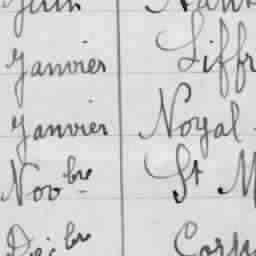 Juin
Janvier Liffr
Janvier Noyal
Novbre St M
Décbre Corp